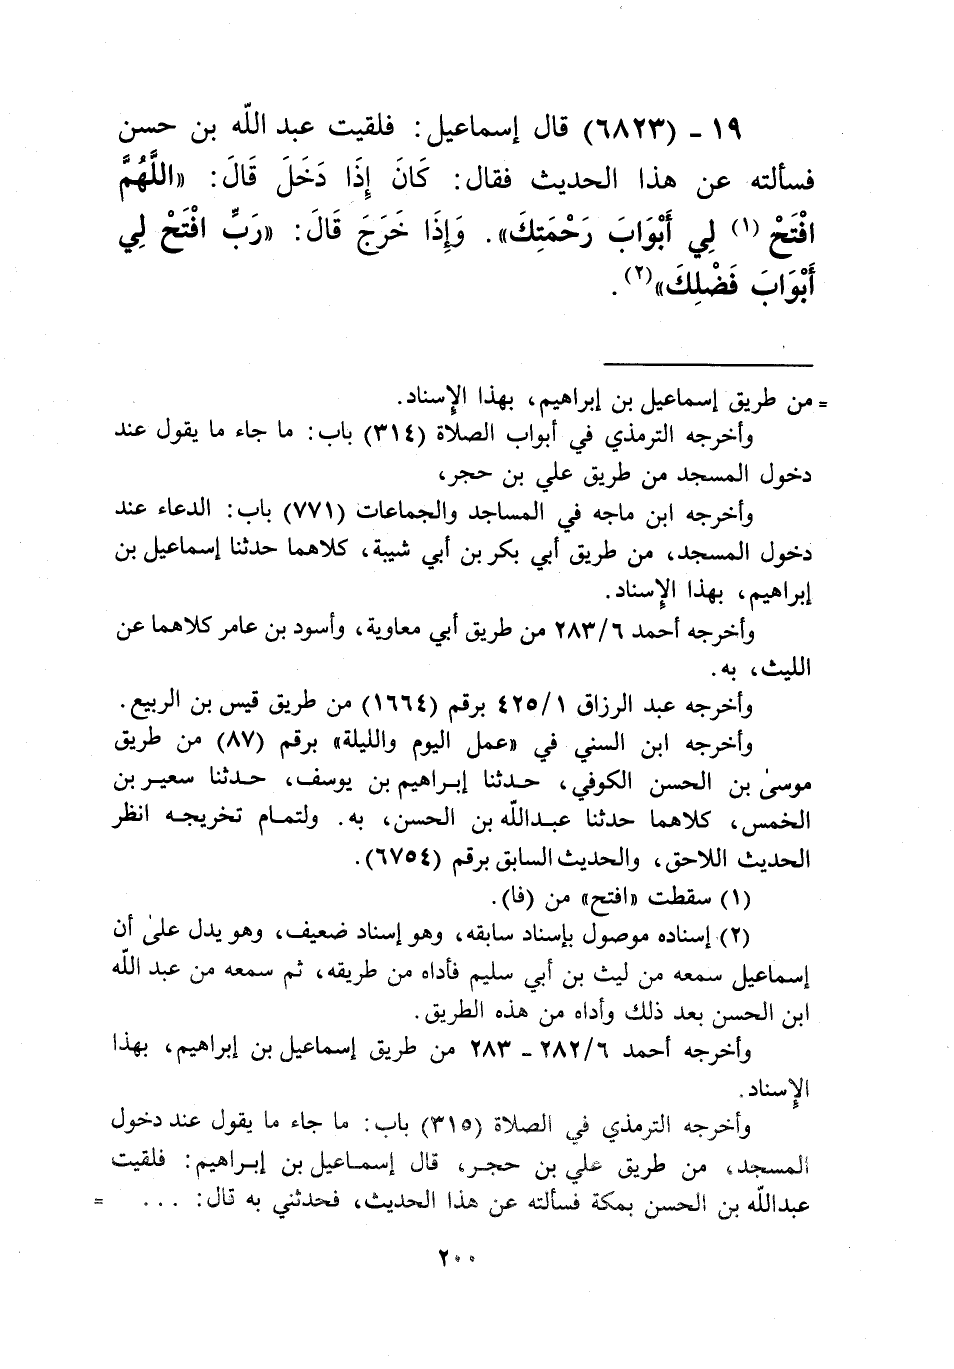 ١٩ - (٦٨٢٣) قال إسماعيل: فلقيت عبد اللّه بن حسن
فسألته عن هذا الحديث فقال: كَانَ إِذَا دَخَلَ قَالَ: «اللَّهُمَّ
افْتَحْ (١) لِي أَبْوَابَ رَحْمَتِكَ». وَإِذَا خَرَجَ قَالَ: «رَبِّ افْتَحْ لِي
أَبْوَابَ فَضْلِكَ»(٢).
= من طريق إسماعيل بن إبراهيم، بهذا الإسناد.
وأخرجه الترمذي في أبواب الصلاة (٣١٤) باب: ما جاء ما يقول عند
دخول المسجد من طريق علي بن حجر،
وأخرجه ابن ماجه في المساجد والجماعات (٧٧١) باب: الدعاء عند
دخول المسجد، من طريق أبي بكر بن أبي شيبة، كلاهما حدثنا إسماعيل بن
إبراهيم، بهذا الإسناد.
وأخرجه أحمد ٢٨٣/٦ من طريق أبي معاوية، وأسود بن عامر كلاهما عن
الليث، به.
وأخرجه عبد الرزاق ٤٢٥/١ برقم (١٦٦٤) من طريق قيس بن الربيع.
وأخرجه ابن السني في «عمل اليوم والليلة» برقم (٨٧) من طريق
موسىٰ بن الحسن الكوفي، حدثنا إبراهيم بن يوسف، حدثنا سعير بن
الخمس، كلاهما حدثنا عبداللّه بن الحسن، به. ولتمام تخريجه انظر
الحديث اللاحق، والحديث السابق برقم (٦٧٥٤).
(١) سقطت «افتح» من (فا).
(٢) إسناده موصول بإسناد سابقه، وهو إسناد ضعيف، وهو يدل علىٰ أن
إسماعيل سمعه من ليث بن أبي سليم فأداه من طريقه، ثم سمعه من عبد اللّه
ابن الحسن بعد ذلك وأداه من هذه الطريق.
وأخرجه أحمد ٢٨٢/٦ - ٢٨٣ من طريق إسماعيل بن إبراهيم، بهذا
الإسناد.
وأخرجه الترمذي في الصلاة (٣١٥) باب: ما جاء ما يقول عند دخول
المسجد، من طريق علي بن حجر، قال إسماعيل بن إبراهيم: فلقيت
عبداللّه بن الحسن بمكة فسألته عن هذا الحديث، فحدثني به قال: ... =
٢٠٠